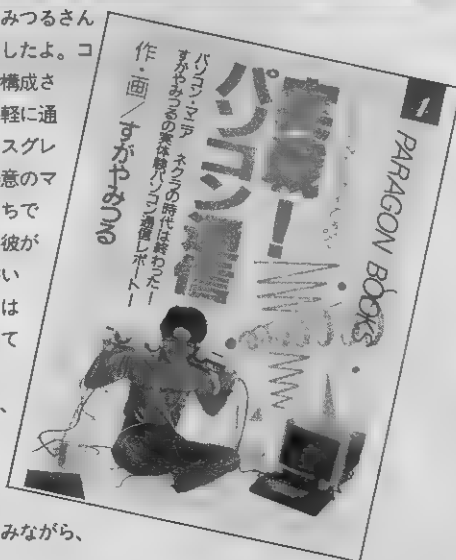 みつるさん
したよ。コ
構成さ
軽に通
スグレ
意のマ
ちで
彼が
い
は
て
、
みながら、
1
PARAGON BOOKS
！
パソコン
パソコン・マニア ネクラの時代は終わった！
すがやみつるの実体験パソコン通信レポート！
作・画／すがやみつる